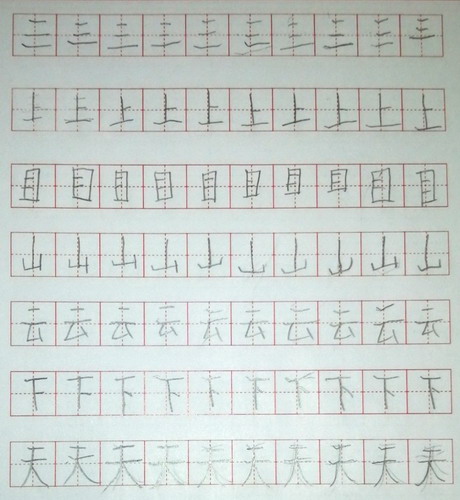 三三三三三三三三三三
上上上上上上上上上上
目目目目目目目目目目
山山山山山山山山山山
云云云云云云云云云云
下下下下下下下下下下
天天天天天天天天天天